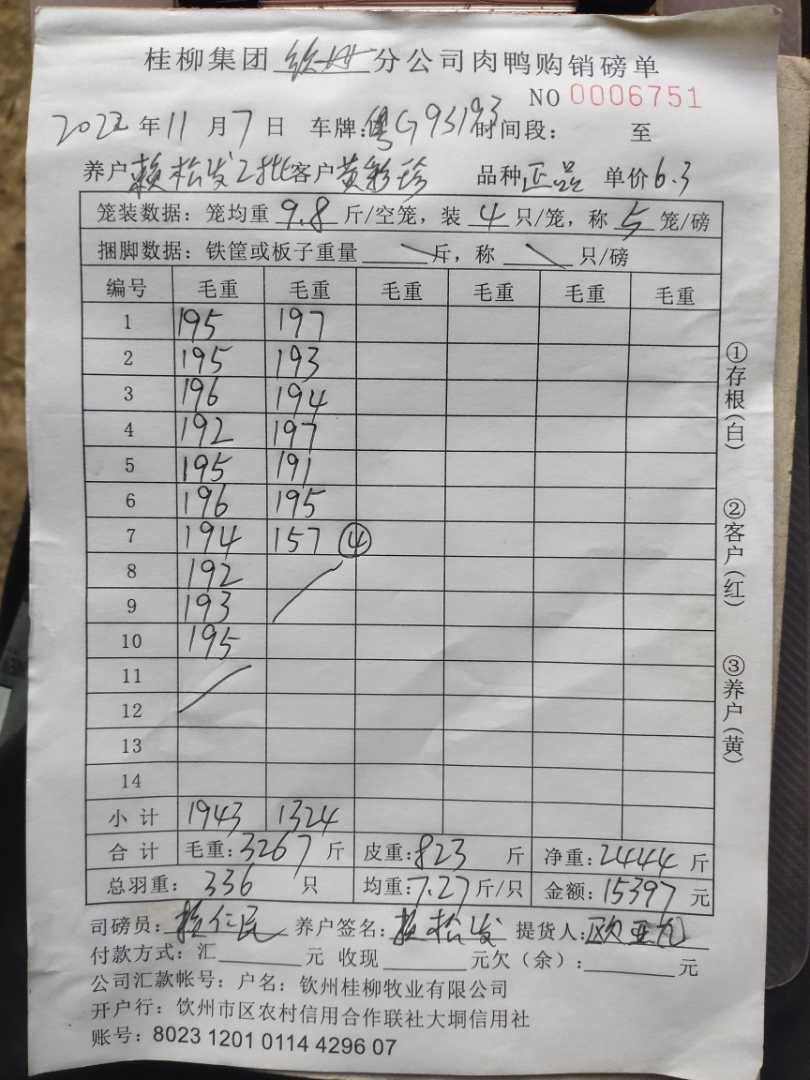 桂柳集团 钦州 分公司肉鸭购销磅单
NO 0006751
2022 年 11 月 7 日 车牌:粤G93193 时间段: 至
养户 赖松发2批 客户 黄彩珍 品种 正品 单价 6.3
笼装数据: 笼均重 9.8 斤/空笼, 装 4 只/笼, 称 5 笼/磅
捆脚数据: 铁筐或板子重量 斤, 称 只/磅
编号 毛重 毛重 毛重 毛重 毛重 毛重
1 195 197
2 195 193
3 196 194
4 192 197
5 195 191
6 196 195
7 194 157 ④
8 192
9 193
10 195
11
12
13
14
小计 1943 1324
合计 毛重: 3267 斤 皮重: 823 斤 净重: 2444 斤
总羽重: 336 只 均重: 7.27 斤/只 金额: 15397 元
司磅员: 赖仁民 养户签名: 赖松发 提货人: 欧亚九
付款方式: 汇 元 收现 元欠(余): 元
公司汇款帐号: 户名: 钦州桂柳牧业有限公司
开户行: 饮州市区农村信用合作联社大垌信用社
账号: 8023 1201 0114 4296 07
①存根(白)
②客户(红)
③养户(黄)